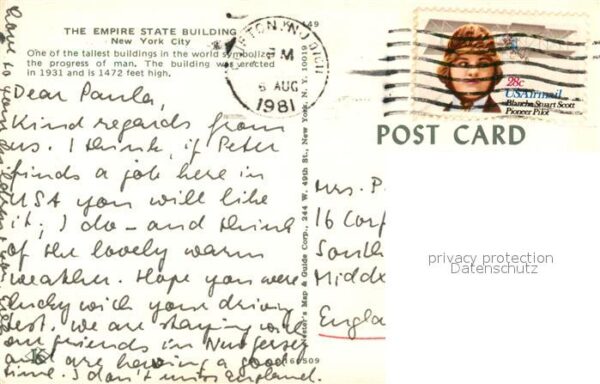 THE EMPIRE STATE BUILDING
New York City
One of the tallest buildings in the world symbolizes
the progress of man. The building was erected
in 1931 and is 1472 feet high.
Dear Paula,
Kind regards from
us. I think, if Peter
finds a job here in
USA you will like
it; I do - and think
of the lovely warm
weather. Hope you were
lucky with your driving
test. We are staying with
our friends in New Jersey
and are having a good
time. I don't miss England.
Love to
49
N.J
PM
6 AUG
1981
28c
USAirmail
Blanche Stuart Scott
Pioneer Pilot
POST CARD
Map & Guide Corp., 244 W. 49th St., New York, N.Y. 10019
Mrs. P
16
South
Middx
Engla
privacy protection
Datenschutz